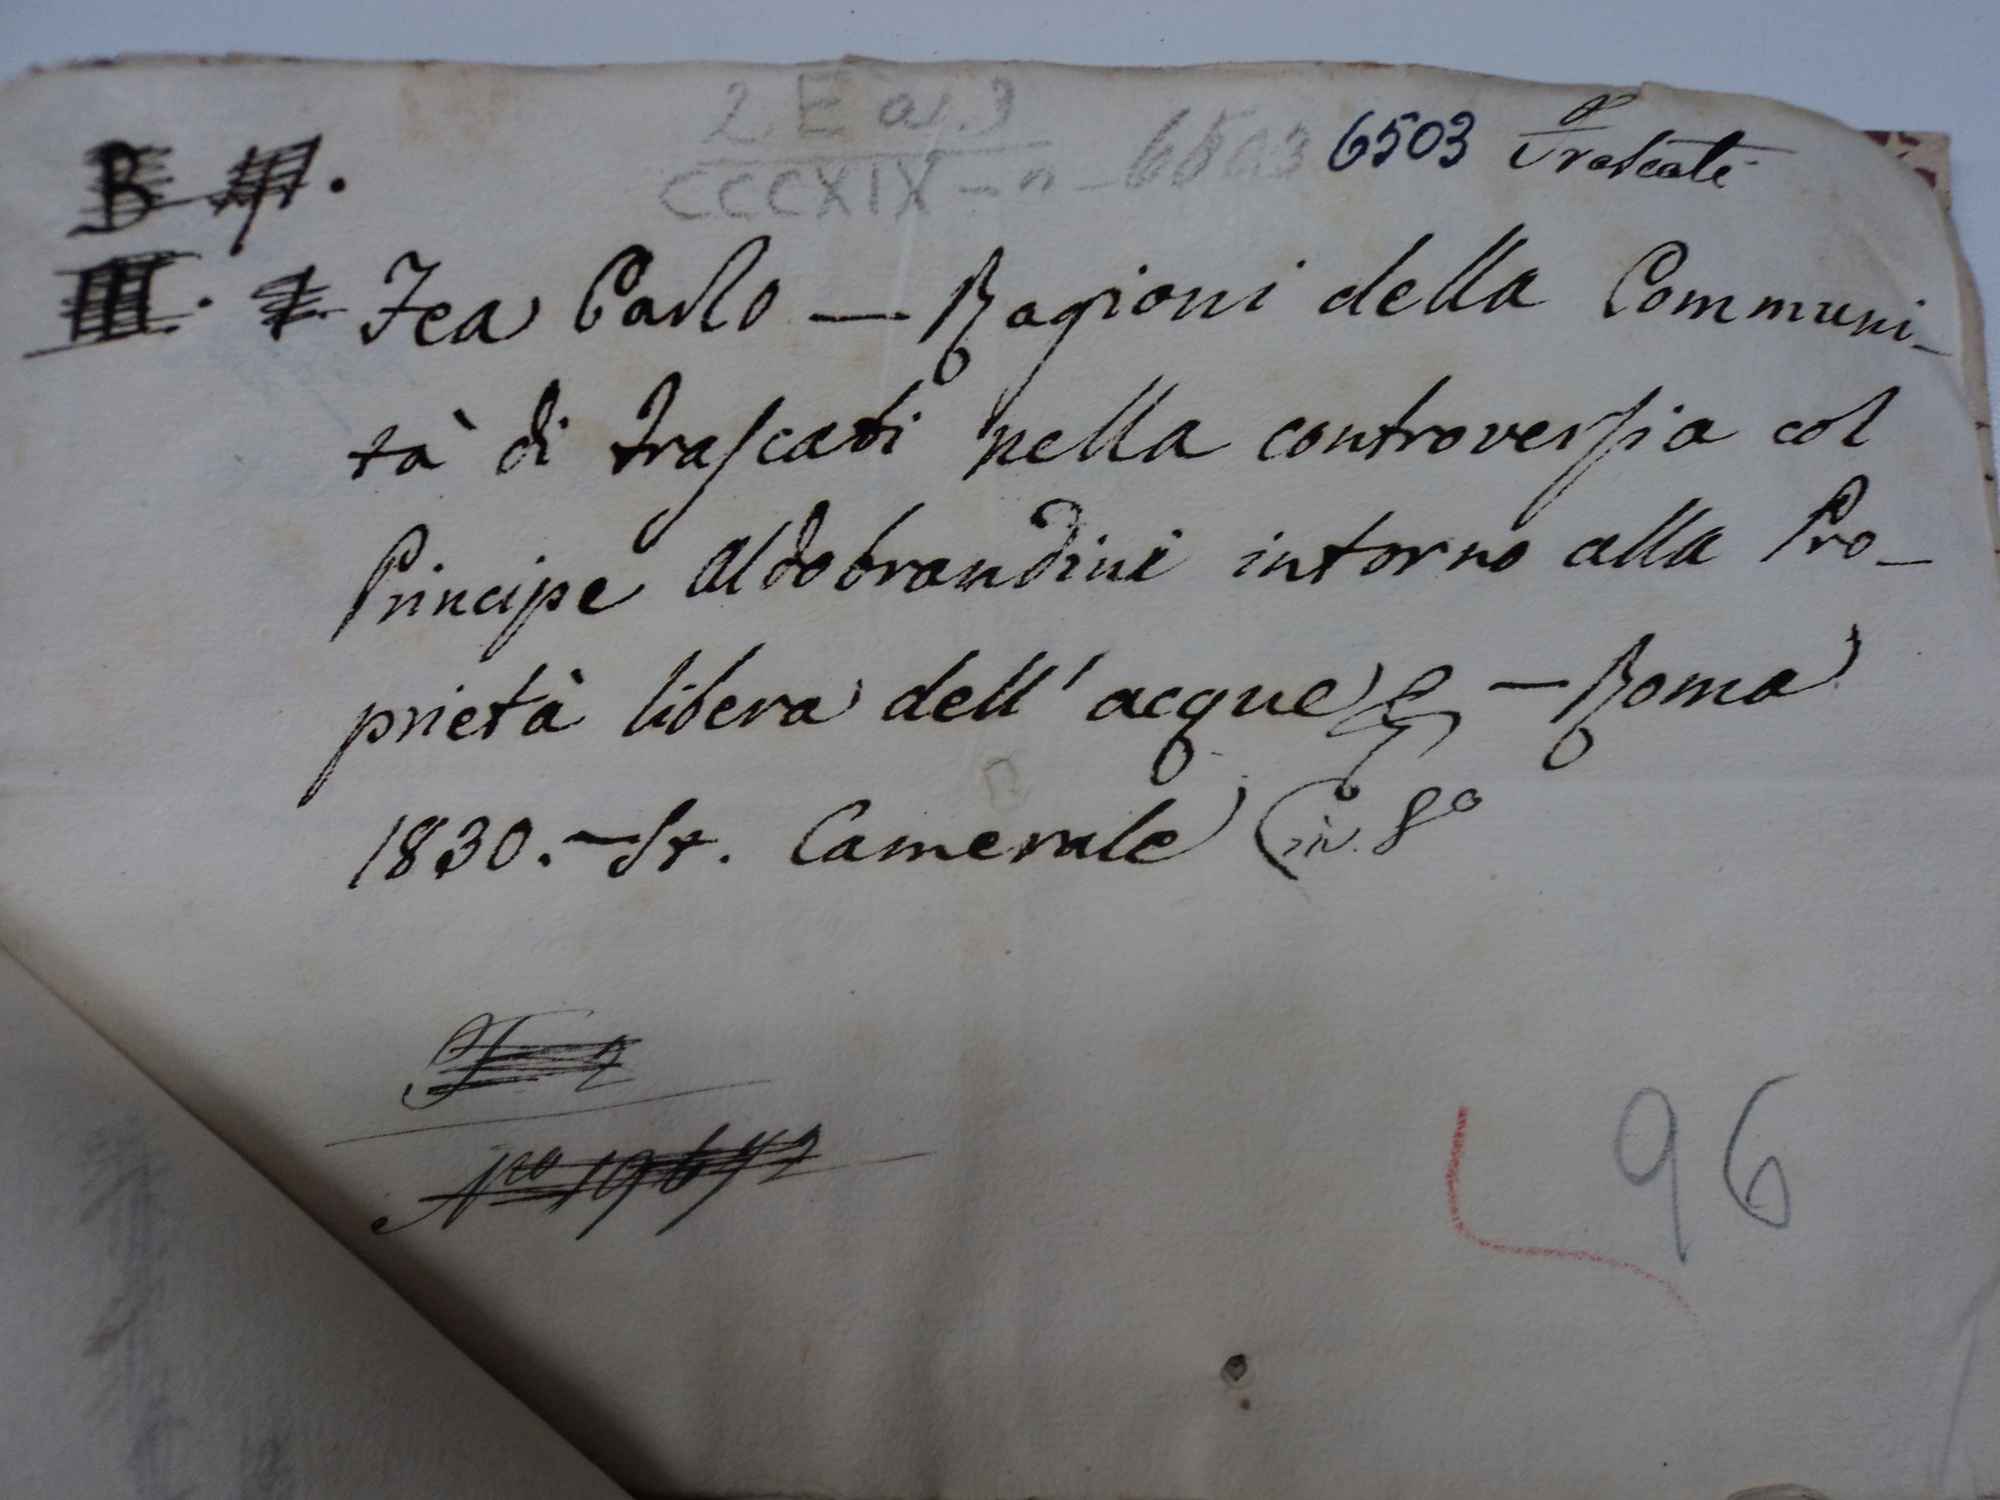 6503 Frascati
CCCXIX - n - 6503
B
III.
Fea Carlo — Ragioni della Communi-
tà di Frascati nella controversia col
Principe Aldobrandini intorno alla Pro-
prietà libera dell' acque — Roma
1830. — St. Camerale in 8º
Nro 19642
96